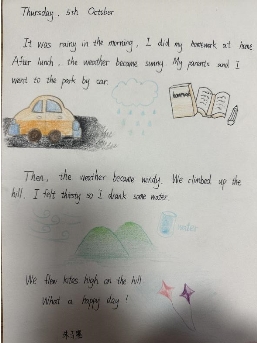 Thursday, 5th October
It was rainy in the morning, I did my homework at home
After lunch, the weather became sunny My parents and I
went to the park by car.
homework
Then, the weather became windy. We climbed up the
hill. I felt thirsty so I drank some water.
water
We flew kites high on the hill.
What a happy day!